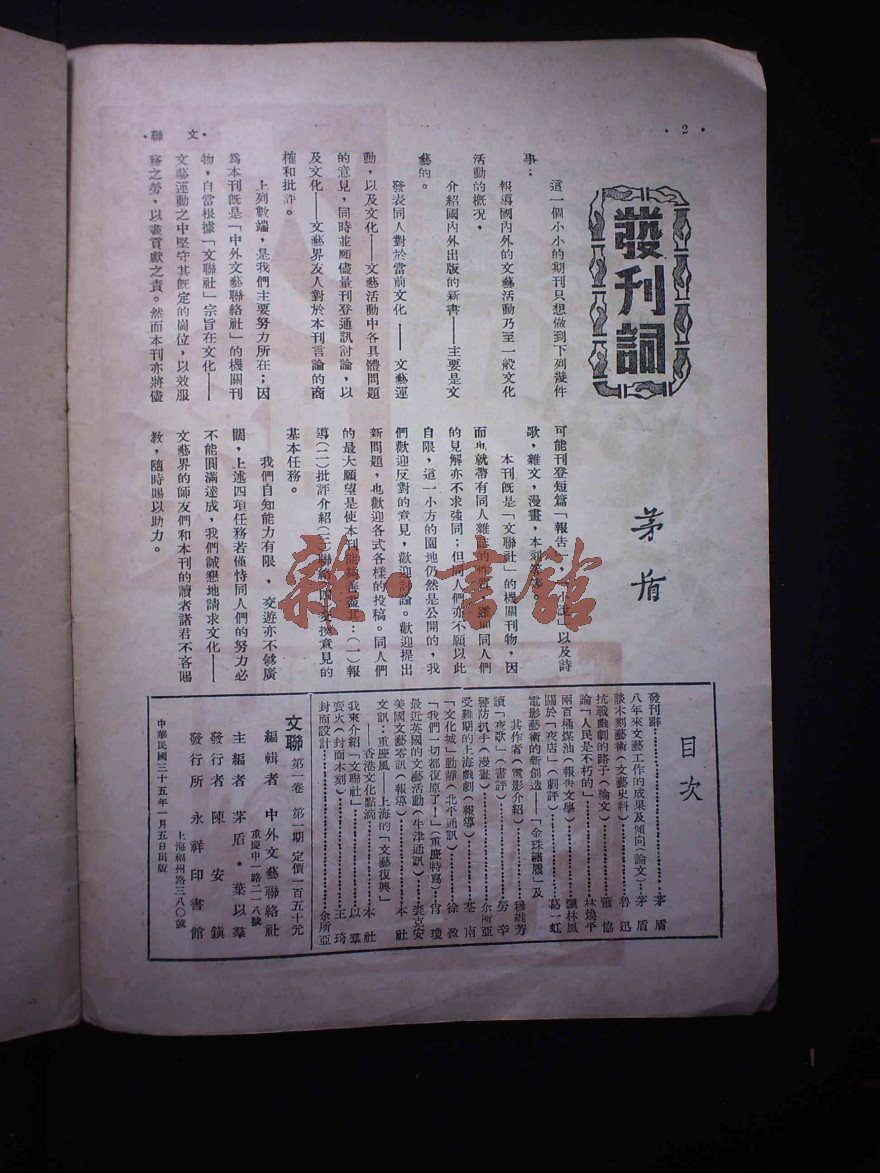 ·2·
文聯·
發刊詞
茅盾
這一個小小的期刊只想做到下列幾件
事：
報導國內外的文藝活動乃至一般文化
活動的概況，
介紹國內外出版的新書——主要是文
藝的。
發表同人對於當前文化——文藝運
動，以及文化——文藝活動中各具體問題
的意見，同時並願儘量刊登通訊討論，以
及文化——文藝界友人對於本刊言論的商
榷和批評。
上列數端，是我們主要努力所在；因
為本刊既是「中外文藝聯絡社」的機關刊
物，自當根據「文聯社」宗旨在文化——
文藝運動之中堅守其既定的崗位，以效服
務之勞，以盡貢獻之責。然而本刊亦將儘
可能刊登短篇「報告」，「小說」以及詩
歌，雜文，漫畫，木刻等等。
本刊既是「文聯社」的機關刊物，因
而也就帶有同人雜誌的性質，同人們
的見解亦不求強同；但同人們亦不願以此
自限，這一小方的園地仍然是公開的，我
們歡迎反對的意見，歡迎討論。歡迎提出
新問題，也歡迎各式各樣的投稿。同人們
的最大願望是使本刊能善盡其：（一）報
導（二）批評介紹（三）聯絡（四）交換意見的
基本任務。
我們自知能力有限，交遊亦不够廣
闊，上述四項任務若僅恃同人們的努力必
不能圓滿達成，我們誠懇地請求文化——
文藝界的師友們和本刊的讀者諸君不吝賜
教，隨時賜以助力。
目次
發刊辭……茅盾
八年來文藝工作的成果及傾向（論文）…茅盾
談木刻藝術（文藝史料）……魯迅
抗戰戲劇的路子（論文）……協
論「人民是不朽的」……林燒平
兩百桶煤油（報告文學）……林風
關於「夜店」（劇評）……葛一虹
電影藝術的新創造——「金珠繡履」及
其作者（電影介紹）……穆維芳
讀「夜歌」（書評）……勞辛
警防扒手（漫畫）……余所亞
受難期的上海戲劇（報導）……荃南
「文化城」動靜（北平通訊）……徐盈
「我們一切都復原了！」（重慶特寫）……肖瓊
最近英國的文藝活動（牛津通訊）……裘克安
美國文藝零訊（報導）……本社
文訊：重慶風——上海的「文藝復興」
——香港文化點滴……本社
我來介紹「文聯社」……以羣
螢火（封面木刻）……王琦
封面設計……余所亞
文聯 第一卷 第一期 定價一百五十元
編輯者 中外文藝聯絡社
重慶中一路二一八號
主編者 茅盾·葉以羣
發行者 陳安鎮
發行所 永祥印書館
上海福州路三八〇號
中華民國三十五年一月五日出版
書館